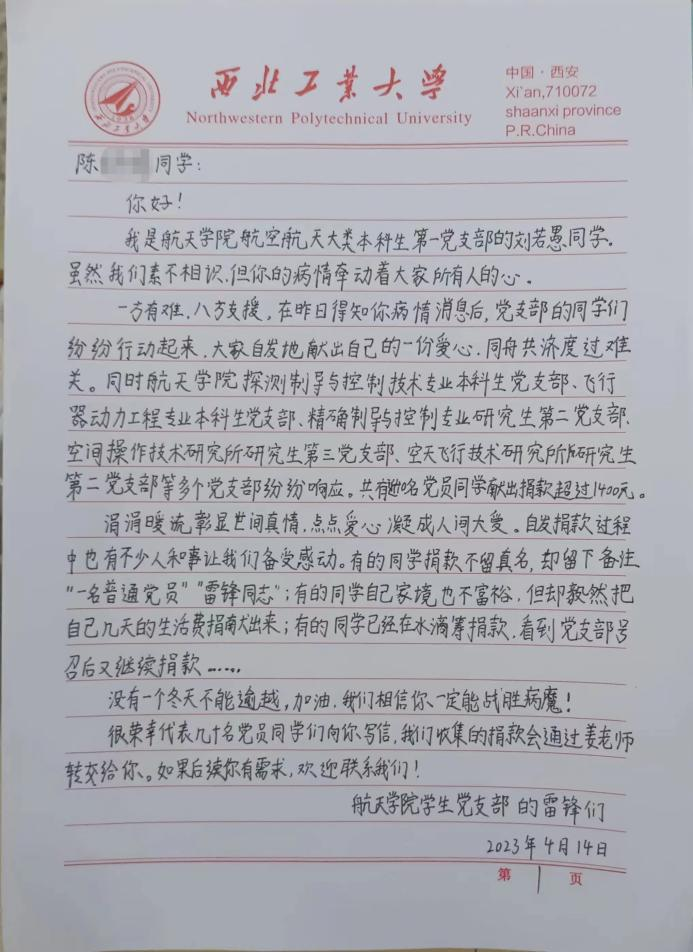 西北工业大学
Northwestern Polytechnical University
中国·西安
Xi'an,710072
shaanxi province
P.R.China
陈 同学:
你好!
我是航天学院航空航天大类本科生第一党支部的刘若愚同学。
虽然我们素不相识,但你的病情牵动着大家所有人的心。
一方有难,八方支援,在昨日得知你病情消息后,党支部的同学们
纷纷行动起来,大家自发地献出自己的一份爱心,同舟共济度过难
关。同时航天学院探测制导与控制技术专业本科生党支部、飞行
器动力工程专业本科生党支部、精确制导与控制专业研究生第二党支部、
空间操作技术研究所研究生第三党支部、空天飞行技术研究所研究生
第二党支部等多个党支部纷纷响应。共有 名党员同学献出捐款超过1400元。
涓涓暖流彰显世间真情,点点爱心凝成人间大爱。自发捐款过程
中也有不少人和事让我们备受感动。有的同学捐款不留真名,却留下备注
"一名普通党员""雷锋同志";有的同学自己家境也不富裕,但却毅然把
自己几天的生活费捐献出来;有的同学已经在水滴筹捐款,看到党支部号
召后又继续捐款……
没有一个冬天不能逾越,加油,我们相信你一定能战胜病魔!
很荣幸代表几十名党员同学们向你写信,我们收集的捐款会通过姜老师
转交给你。如果后续你有需求,欢迎联系我们!
航天学院学生党支部的雷锋们
2023年4月14日
第 1 页